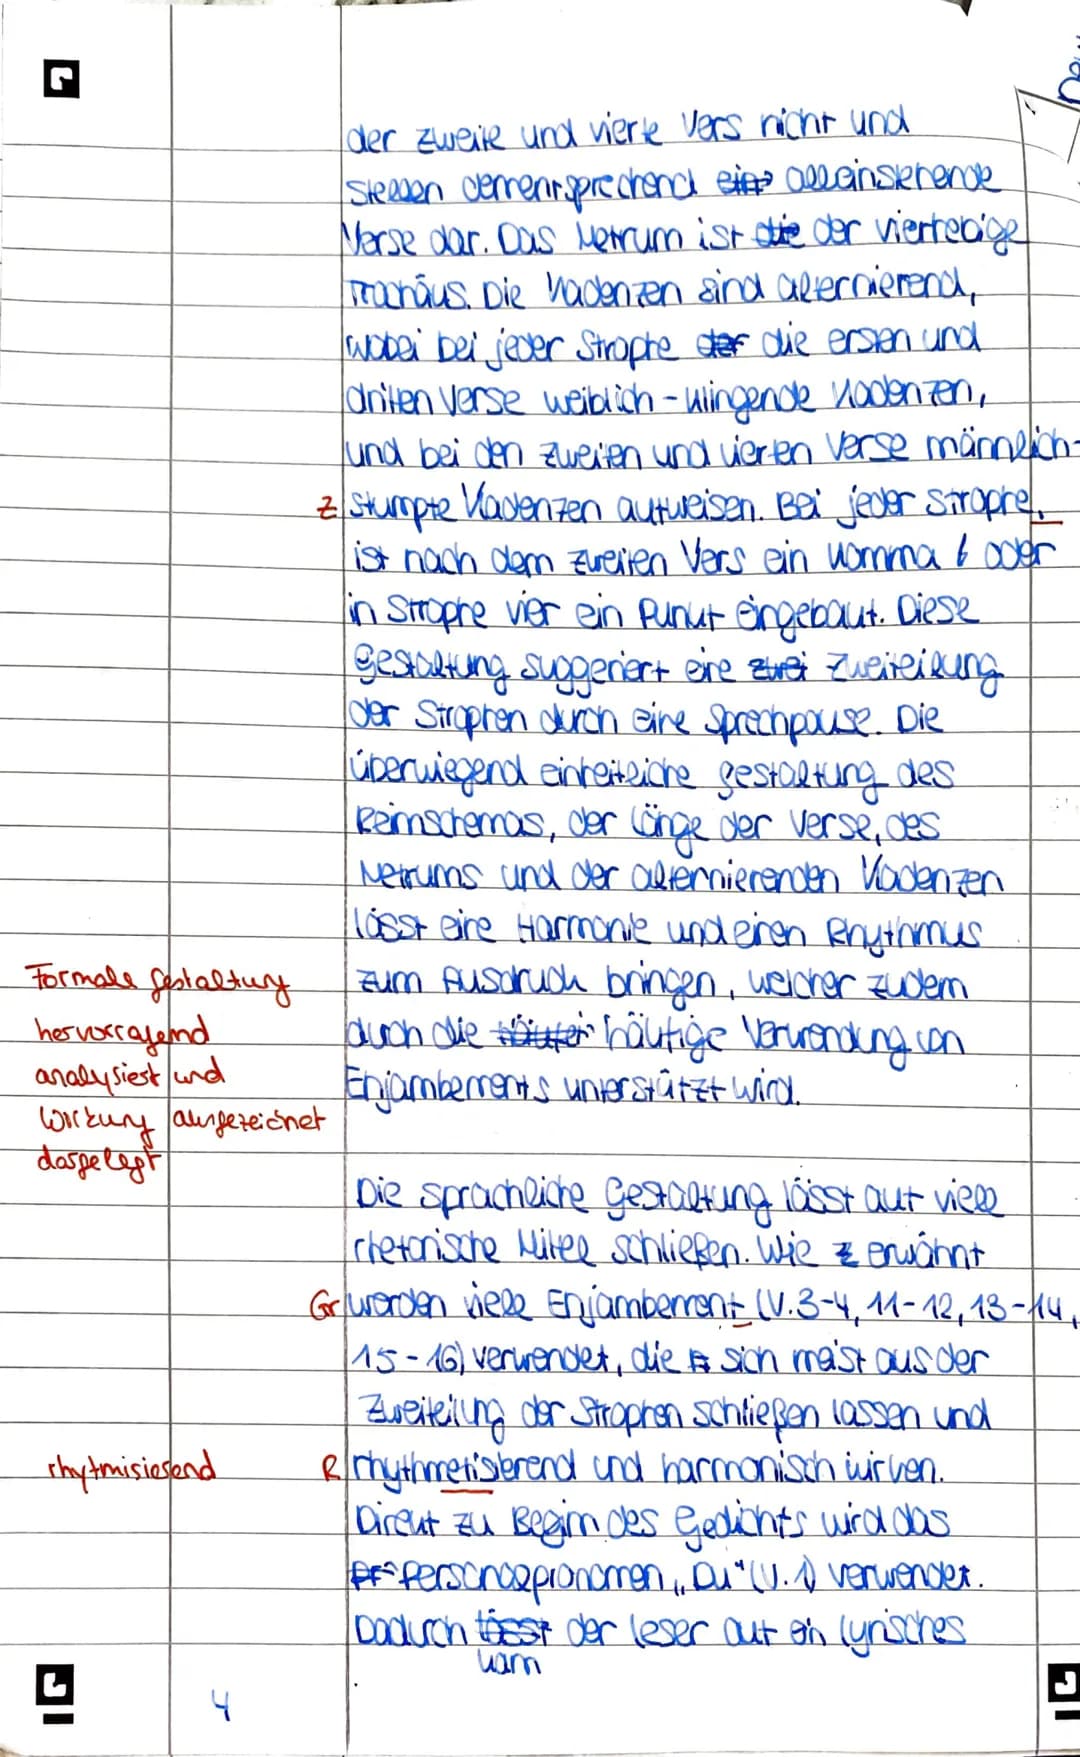 der zweite und vierte Vers nicht und
stellen dementsprechend eine alleinstehende
Verse dar. Das Metrum ist die der vierhebige
Trochäus. Die Kadenzen sind alternierend,
wobei bei jeder Strophe der die ersten und
dritten Verse weiblich-klingende Kadenzen,
und bei den zweiten und vierten Verse männlich-
Z stumpfe Kadenzen aufweisen. Bei jeder Strophe,
ist nach dem zweiten Vers ein Komma oder
in Strophe vier ein Punkt eingebaut. Diese
Gestaltung suggeriert eine zwei Zweiteilung
der Strophen durch eine Sprechpause. Die
überwiegend einheitliche Gestaltung des
Reimschemas, der Länge der Verse, des
Metrums und der alternierenden Kadenzen
lässt eine Harmonie und einen Rhythmus
Formale Gestaltung zum Ausdruck bringen, welcher zudem
hervorragend durch die häufige Verwendung von
analysiert und Enjambements unterstützt wird.
Wirkung ausgezeichnet
dargelegt
Die sprachliche Gestaltung lässt auf viele
rhetorische Mittel schließen. Wie erwähnt
Gr werden viele Enjambement (V.3-4, 11-12, 13-14,
15-16) verwendet, die sich meist aus der
Zweiteilung der Strophen schließen lassen und
rhytmisierend R rhythmetisierend und harmonisch wirken.
Direkt zu Beginn des Gedichts wird das
Personalpronomen „Du" (V.1) verwendet.
Dadurch lässt der Leser auf ein lyrisches
kann
4